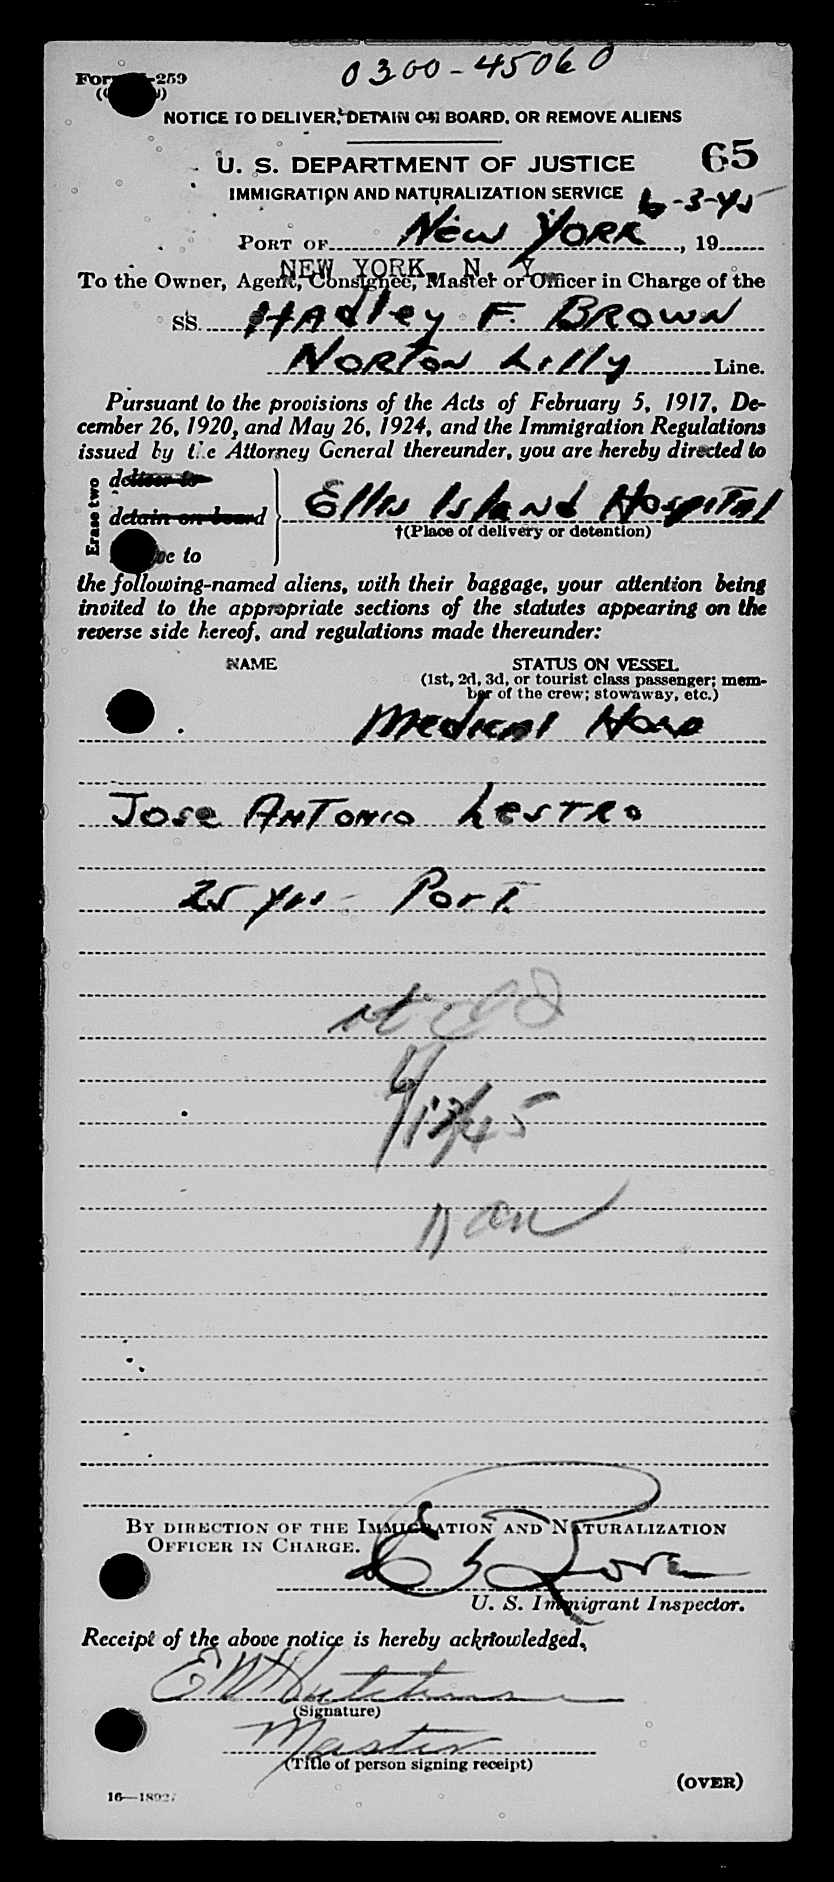 0300-45060
NOTICE TO DELIVER, DETAIN ON BOARD, OR REMOVE ALIENS
U. S. DEPARTMENT OF JUSTICE 65
IMMIGRATION AND NATURALIZATION SERVICE 6-3-45
PORT OF New YORK, 19
NEW YORK, N. Y.
To the Owner, Agent, Consignee, Master or Officer in Charge of the
SS. HAdley F. BROWN
NORTON Lilly Line.
Pursuant to the provisions of the Acts of February 5, 1917, De-
cember 26, 1920, and May 26, 1924, and the Immigration Regulations
issued by the Attorney General thereunder, you are hereby directed to
Erase two
deliver to
detain on board Ellis Island Hospital
†(Place of delivery or detention)
to
the following-named aliens, with their baggage, your attention being
invited to the appropriate sections of the statutes appearing on the
reverse side hereof, and regulations made thereunder:
NAME STATUS ON VESSEL
(1st, 2d, 3d, or tourist class passenger; mem-
ber of the crew; stowaway, etc.)
Medical
Jose ANTONIO LesTRO
25 yrs - Port.
6/13/45
BY DIRECTION OF THE IMMIGRATION AND NATURALIZATION
OFFICER IN CHARGE.
U. S. Immigrant Inspector.
Receipt of the above notice is hereby acknowledged,
(Signature)
Master
(Title of person signing receipt)
(OVER)